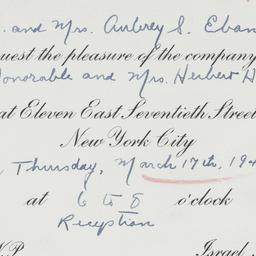 . and Mrs. Aubrey S. Eban
quest the pleasure of the company
Honorable and Mrs. Herbert H
at Eleven East Seventieth Street
New York City
Thursday, March 17th, 194
at 6 to 8 o'clock
Reception
V.P. Israel